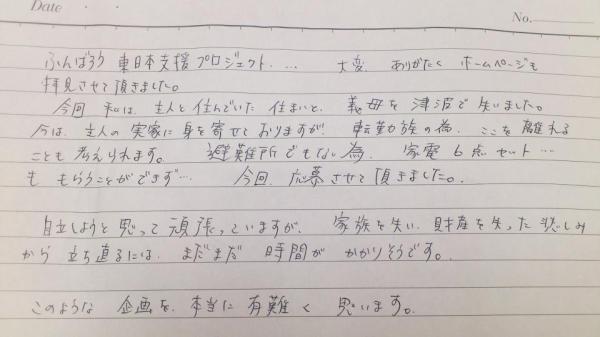 Date
No.
ふんばろう 東日本支援プロジェクト... 大変、ありがたく ホームページも
拝見させて頂きました。
今回 私は、主人と住んでいた 住まいと、義母を 津波で失いました。
今は、主人の実家に身を寄せておりますが、転勤族の為、ここを離れる
ことも考えられます。 避難所でもない為、家電6点セット...
も もらうことができず... 今回、応募させて頂きました。
自立しようと思って 頑張っていますが、家族を失い、財産を失った悲しみ
から 立ち直るには、まだまだ 時間が かかりそうです。
このような 企画を、本当に 有難く 思います。